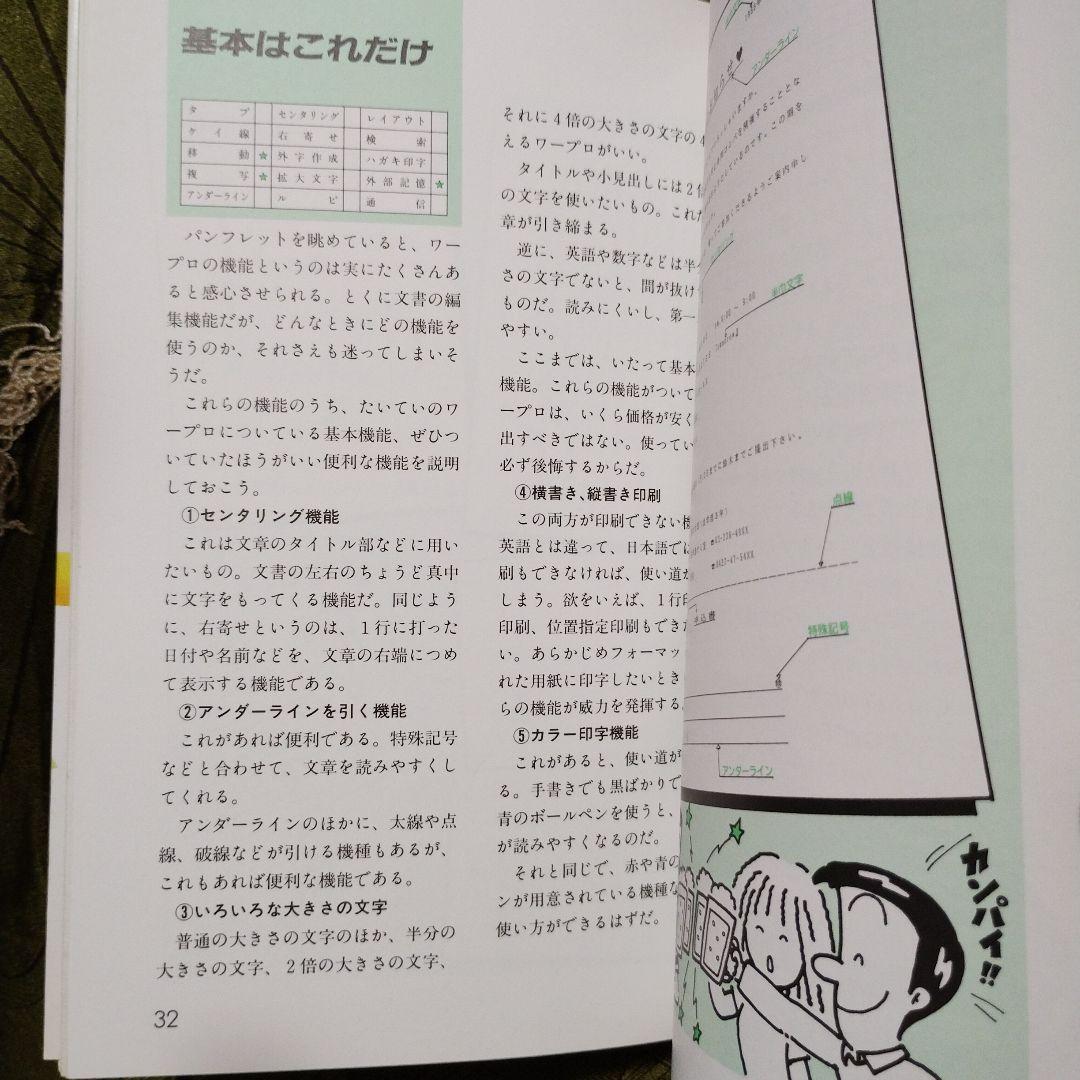 基本はこれだけ
タブ センタリング レイアウト
ケイ線 右寄せ 検索
移動 ☆ 外字作成 ハガキ印字
複写 ☆ 拡大文字 外部記憶 ☆
アンダーライン ルビ 通信
パンフレットを眺めていると、ワー
プロの機能というのは実にたくさんあ
ると感心させられる。とくに文書の編
集機能だが、どんなときにどの機能を
使うのか、それさえも迷ってしまいそ
うだ。
これらの機能のうち、たいていのワ
ープロについている基本機能、ぜひつ
いていたほうがいい便利な機能を説明
しておこう。
①センタリング機能
これは文章のタイトル部などに用い
たいもの。文書の左右のちょうど真中
に文字をもってくる機能だ。同じよう
に、右寄せというのは、1行に打った
日付や名前などを、文章の右端につめ
て表示する機能である。
②アンダーラインを引く機能
これがあれば便利である。特殊記号
などと合わせて、文章を読みやすくし
てくれる。
アンダーラインのほかに、太線や点
線、破線などが引ける機種もあるが、
これもあれば便利な機能である。
③いろいろな大きさの文字
普通の大きさの文字のほか、半分の
大きさの文字、2倍の大きさの文字、
32
それに4倍の大きさの文字の4
えるワープロがいい。
タイトルや小見出しには2倍
の文字を使いたいもの。これだ
章が引き締まる。
逆に、英語や数字などは半
さの文字でないと、間が抜け
ものだ。読みにくいし、第一
やすい。
ここまでは、いたって基本
機能。これらの機能がついて
ープロは、いくら価格が安く
出すべきではない。使ってい
必ず後悔するからだ。
④横書き、縦書き印刷
この両方が印刷できない機
英語とは違って、日本語では
刷もできなければ、使い道が
しまう。欲をいえば、1行印
印刷、位置指定印刷もできた
い。あらかじめフォーマッ
れた用紙に印字したいとき
らの機能が威力を発揮する。
⑤カラー印字機能
これがあると、使い道が
る。手書きでも黒ばかりで
青のボールペンを使うと、
が読みやすくなるのだ。
それと同じで、赤や青の
ンが用意されている機種な
使い方ができるはずだ。
らせ♥
アンダーライン
半巾文字
までご提出下さい。
点線
申込書
特殊記号
アンダーライン
カンパイ!!